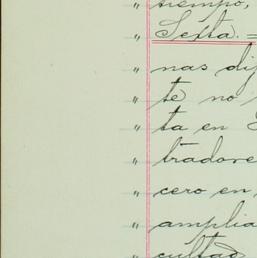 „ tiempo,
„ Sexta. =
„ nas dij
„ te no
„ ta en
„ tradore
„ cero en
„ amplia
„ cultad